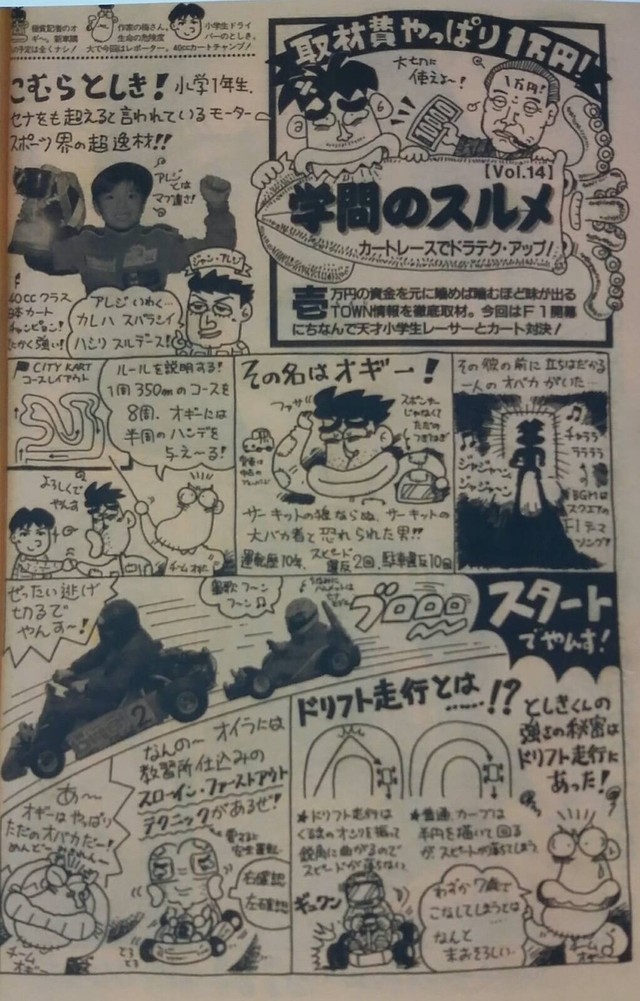 作家の梅さん。
生命の危険度
大で今回はレポーター。
小学生ドライ
バーのとしき。
40ccカートチャンプ!
取材費やっぱり1万円!
大切に
使えよ〜!
1万円!
【Vol.14】
学問のスルメ
カートレースでドラテク・アップ!
壱万円の資金を元に噛めば噛むほど味が出る
TOWN情報を徹底取材。今回はF1開幕
にちなんで天才小学生レーサーとカート対決!
こむらとしき!小学1年生.
セナをも超えると言われているモーター
スポーツ界の超逸材!!
アレジ
とは
マブ達さ!
ジャン・アレジ
40ccクラス
日本カート
チャンピョン!
とにかく強い!
アレジいわく…
カレハ スバラシイ
ハシリ スルデース!
CITY KART
コースレイアウト
ルールを説明する!
1周350mのコースを
8周.オギーには
半周のハンデを
与え〜る!
よろしくで
やんす
チームオギー
その名はオギー!
ファサ
スポンサー
じゃなくて
ただの
つぎはぎ
サーキットの狼ならぬ、サーキットの
大バカ者と恐れられた男!!
運転歴10年、スピード違反2回、駐車違反10回
その彼の前に立ちはだかる
一人のオバカがいた…
チャララ
ララララ
ジャジャーン
ジャジャーン
BGMは
スクエアの
F1テーマ
ソング!
ぜったい逃げ
切るで
やんす〜!
鼻歌フーン
フーン
ブロロロロ
スタート
でやんす!
なんの〜オイラには
教習所仕込みの
スローイン・ファーストアウト
テクニックがあるぜ!
あ〜
オギーはやっぱり
ただのオバカだー!
チーム
オギー
安全運転
右確認
左確認
とろとろ
ドリフト走行とは……!?
としきくんの
強さの秘密は
ドリフト走行に
あった!
★ドリフト走行は
くるまのオシリを振って
鋭角に曲がるので
スピードが落ちない.
★普通、カーブは
半円を描いて回る
が、スピードが落ちてしまう.
ギュワン
わずか7歳で
こなしてしまうとは
なんと
末おそろしい…
チーム
オギー